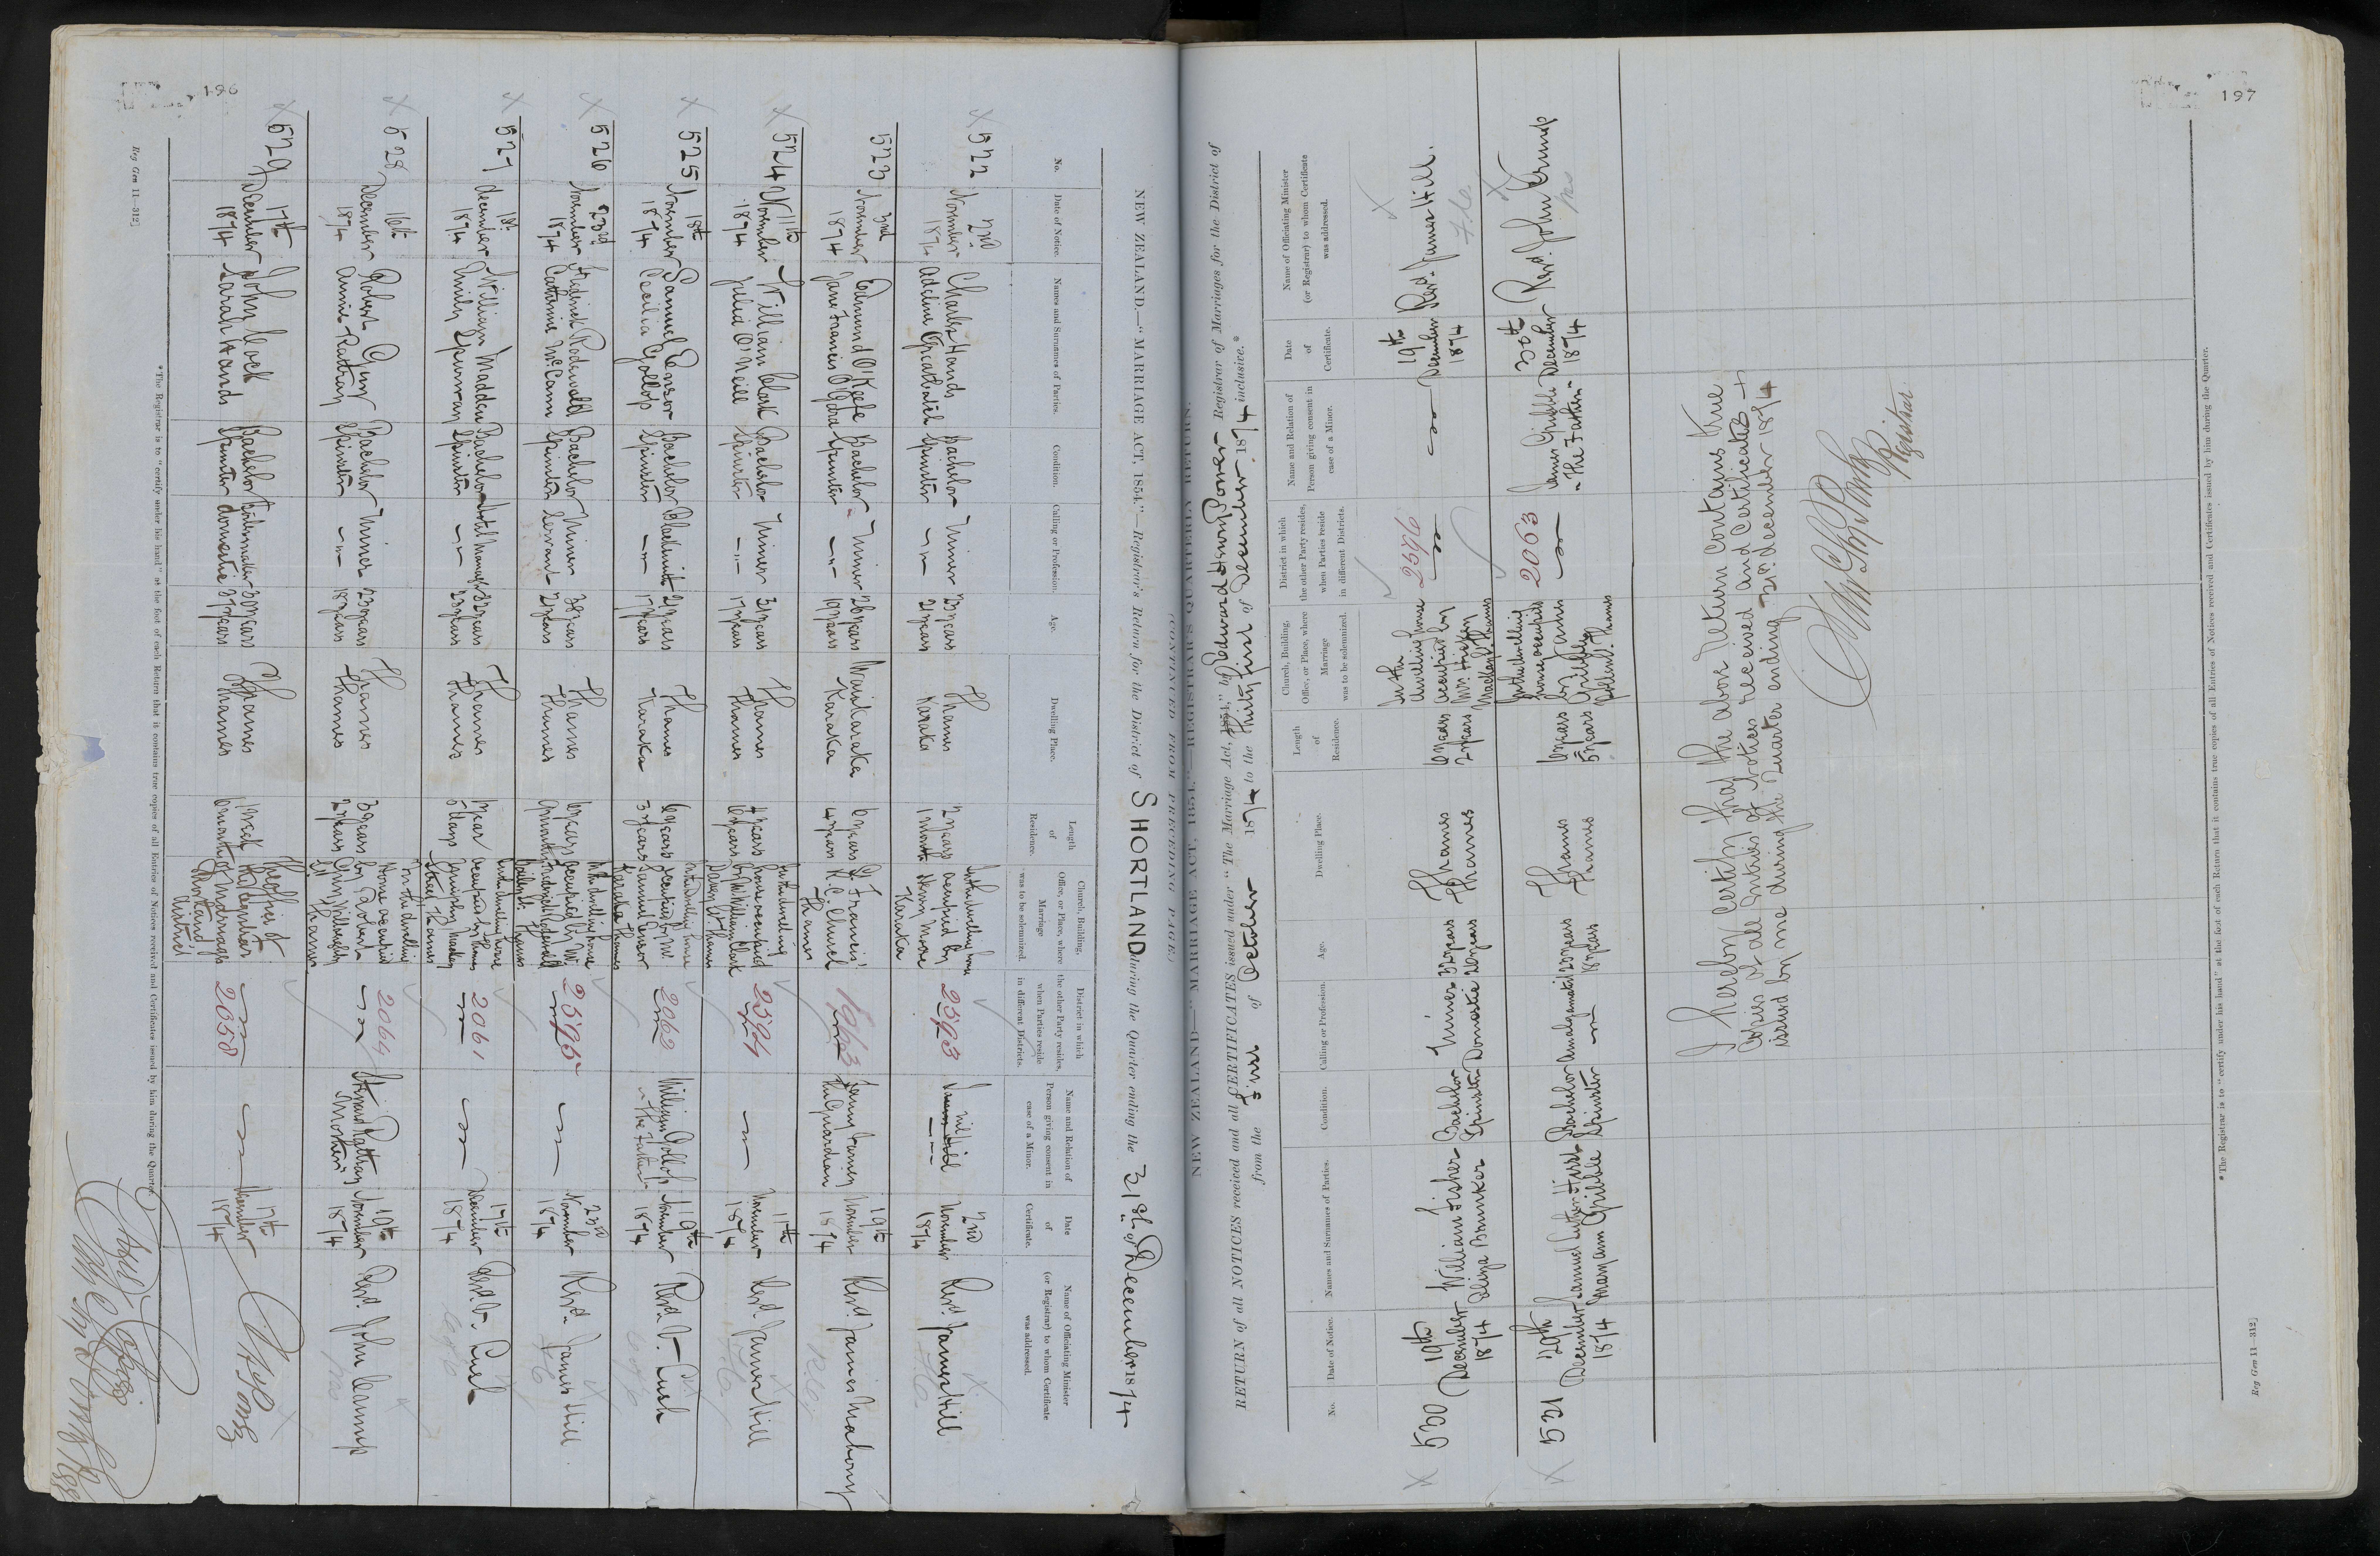 196
NEW ZEALAND.—"MARRIAGE ACT, 1854."—Registrar's Return for the District of SHORTLAND during the Quarter ending the 31st of December 1874
No.
Date of Notice.
Names and Surnames of Parties.
Condition.
Calling or Profession.
Age.
Dwelling Place.
Length of Residence.
Church, Building, Office, or Place, where Marriage was to be solemnized.
District in which the other Party resides, when Parties reside in different Districts.
Name and Relation of Person giving consent in case of a Minor.
Date of Certificate.
Name of Officiating Minister (or Registrar) to whom Certificate was addressed.
522
2nd November 1874
Charles Hands
Bachelor
Spinster
Miner
23 years
21 years
Thames
Karaka
2 years
1 month
In the dwelling house
occupied by
Henry Moore
Karaka
2593
nil
2nd November 1874
Revd. James Hill
523
3rd November 1874
Edmund O'Keefe
Bachelor
Spinster
Miner
26 years
19 years
Karaka
6 years
4 years
St. Francis'
R.C. Church
Thames
1963
19th November 1874
Revd James Mahony
524
11th November 1874
William Clark
Julia O'Neill
Bachelor
Spinster
Miner
31 years
17 years
Thames
Thames
In the dwelling
house occupied
by Mr William Clark
2594
11th November 1874
Revd James Hill
525
18th November 1874
Samuel Ensor
Cecilia Gollop
Bachelor
Spinster
Blacksmith
21 years
17 years
Thames
Karaka
6 years
3 years
In the dwelling house
occupied by Mr
Samuel Ensor
Karaka Thames
2062
William Gollop
"The Father"
19th November 1874
Revd. V. Lush
526
23rd November 1874
Frederick Rodewald
Catherine McCann
Bachelor
Spinster
Miner
Servant
38 years
21 years
Thames
Thames
In the dwelling house
occupied by Mr
Frederick Rodewald
2595
23rd November 1874
Revd. James Hill
527
December 1874
William Madden
Emily Spurway
Bachelor
Spinster
32 years
23 years
Thames
Thames
1 year
5 days
In the dwelling house
occupied by Thames
Street Thames
2061
17th December 1874
Revd. V. Lush
528
16th December 1874
Robert Guy
Annie Rattray
Bachelor
Spinster
Miner
23 years
18 years
Thames
Thames
3 years
2 years
In the dwelling
House occupied
by Robert
Guy
Thames
2064
19th November 1874
Revd. John Crump
529
17th December 1874
John Cock
Sarah Hands
Bachelor
Spinster
Boilermaker
domestic
30 years
37 years
Thames
Thames
1 week
6 months
The office of
the Registrar
of Marriages
Shortland
district
2058
17th December 1874
* The Registrar is to "certify under his hand" at the foot of each Return that it contains true copies of all Entries of Notices received and Certificates issued by him during the Quarter.
Reg Gen 11—312]
197
(CONTINUED FROM PRECEDING PAGE.)
NEW ZEALAND—"MARRIAGE ACT, 1854."—REGISTRAR'S QUARTERLY RETURN.
RETURN of all NOTICES received and all CERTIFICATES issued under "The Marriage Act, 1854," by Edward Henry Power Registrar of Marriages for the District of
from the First of October 1874 to the Thirty first of December 1874 inclusive.*
No.
Date of Notice.
Names and Surnames of Parties.
Condition.
Calling or Profession.
Age.
Dwelling Place.
Length of Residence.
Church, Building, Office, or Place, where Marriage was to be solemnized.
District in which the other Party resides, when Parties reside in different Districts.
Name and Relation of Person giving consent in case of a Minor.
Date of Certificate.
Name of Officiating Minister (or Registrar) to whom Certificate was addressed.
530
19th December 1874
William Fisher
Eliza Bunker
Bachelor
Spinster
Miner
Domestic
32 years
26 years
Thames
Thames
6 years
2 years
In the
dwelling house
occupied by
2596
19th December 1874
Revd. James Hill.
531
29th December 1874
Samuel Luther Hirst
Mary Ann Gribble
Bachelor
Spinster
Amalgamator
23 years
18 years
Thames
Thames
6 years
5 years
In the dwelling
house occupied
by James
Gribble
Thames
2063
James Gribble
"The Father"
30th December 1874
Revd. John Crump
I hereby Certify that the above return contains true
Copies of all Entries of Notices received and Certificates
issued by me during the Quarter ending 31st December 1874
Registrar
* The Registrar is to "certify under his hand" at the foot of each Return that it contains true copies of all Entries of Notices received and Certificates issued by him during the Quarter.
Reg Gen 11—312]